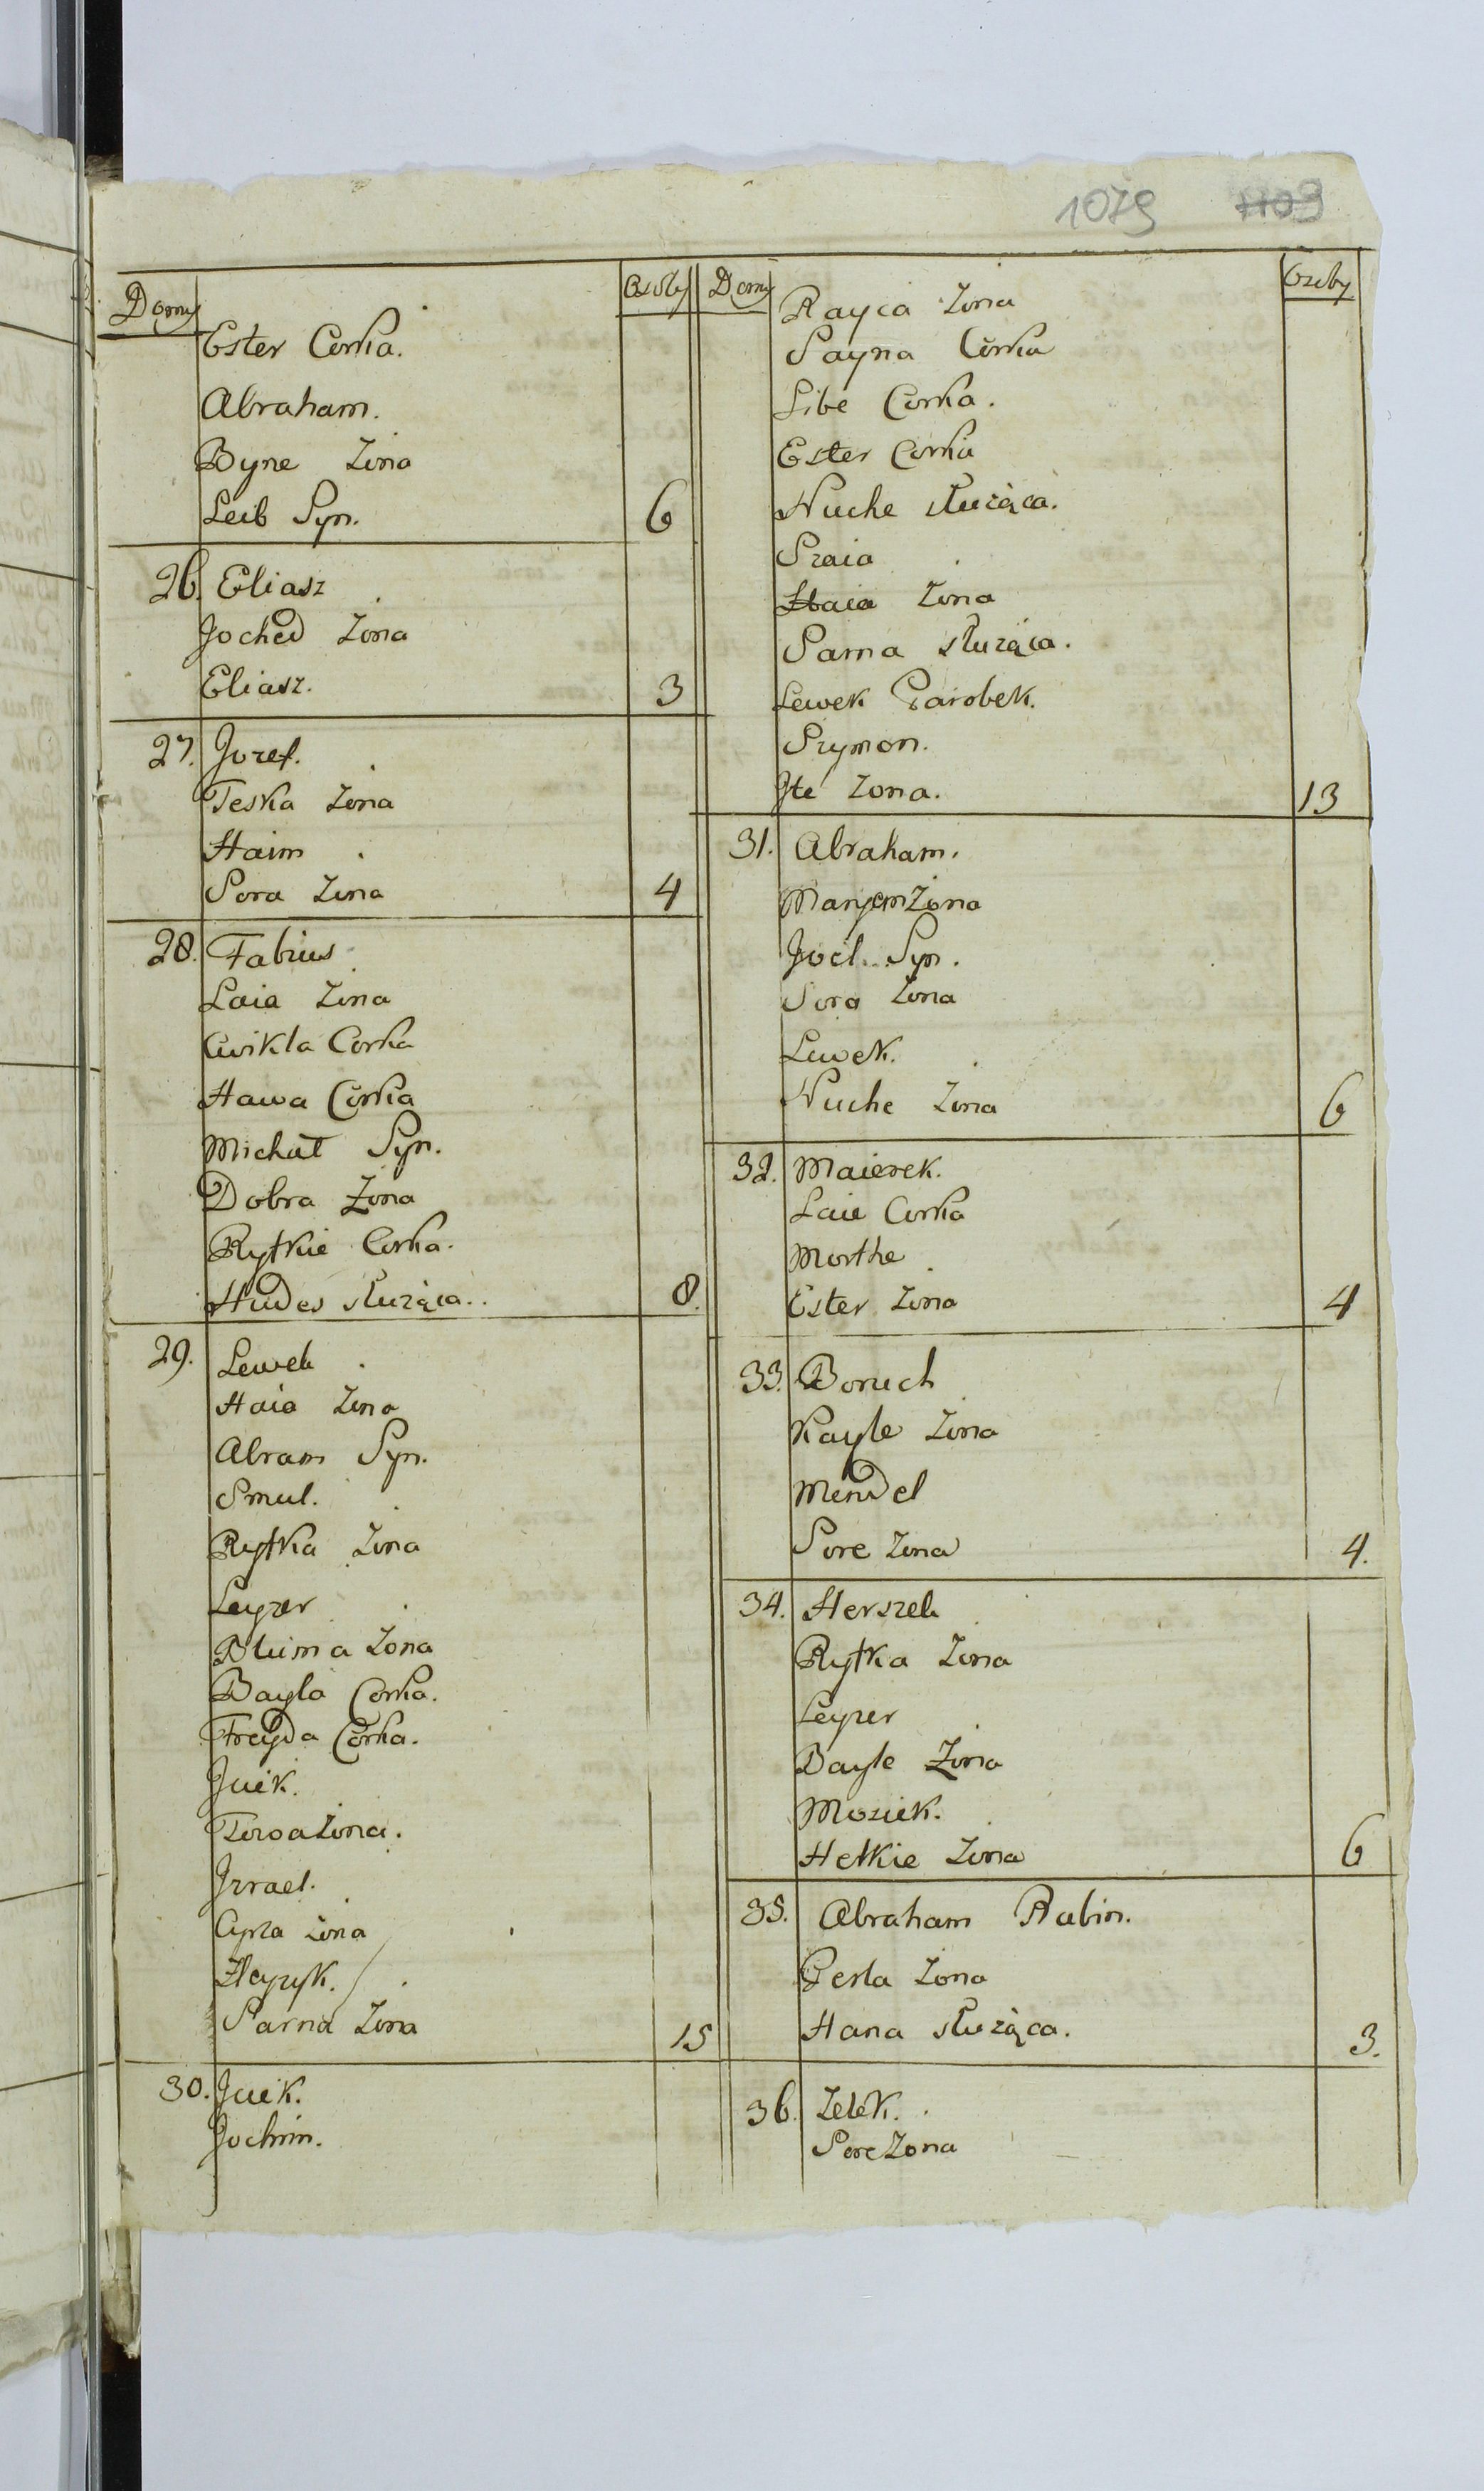 1079 1109
Domy Osoby
Ester Corka.
Abraham.
Byne Żona
Leib Syn. 6
26. Eliasz
Joched Żona
Eliasz. 3
27. Jozef.
Teska Żona
Haim
Sora Żona 4
28. Fabius
Laia Żona
Cwikla Corka
Hawa Córka
Michał Syn.
Dobra Żona
Rytkie Corka.
Hudes służąca. 8.
29. Lewek
Haia Żona
Abram Syn.
Smul.
Rytka Żona
Leyzer
Bluma Żona
Bayla Corka.
Freyda Córka.
Jcek.
Żona.
Jzrael.
Cyrla żona
Sarna Żona 15
30. Jcek.
Jochim.
Domy Osoby
Rayca Żona
Sayna Córka
Libe Corka.
Ester Corka
Nuche służąca.
Szaia
Haia Żona
Sarna służąca.
Lewek Parobek.
Szymon.
Jte Żona. 13
31. Abraham.
Maryem Żona
Joel Syn.
Sora Żona
Lewek.
Nuche Żona 6
32. Maierek.
Laie Corka
Morthe
Ester Żona 4
33. Boruch
Kayle Żona
Mendel
Sore Żona 4.
34. Herszek
Rytka Żona
Leyzer
Bayle Żona
Moziek.
Hetkie Żona 6
35. Abraham Rabin.
Perla Żona
Hana służąca. 3.
36. Zelek.
Sore Żona